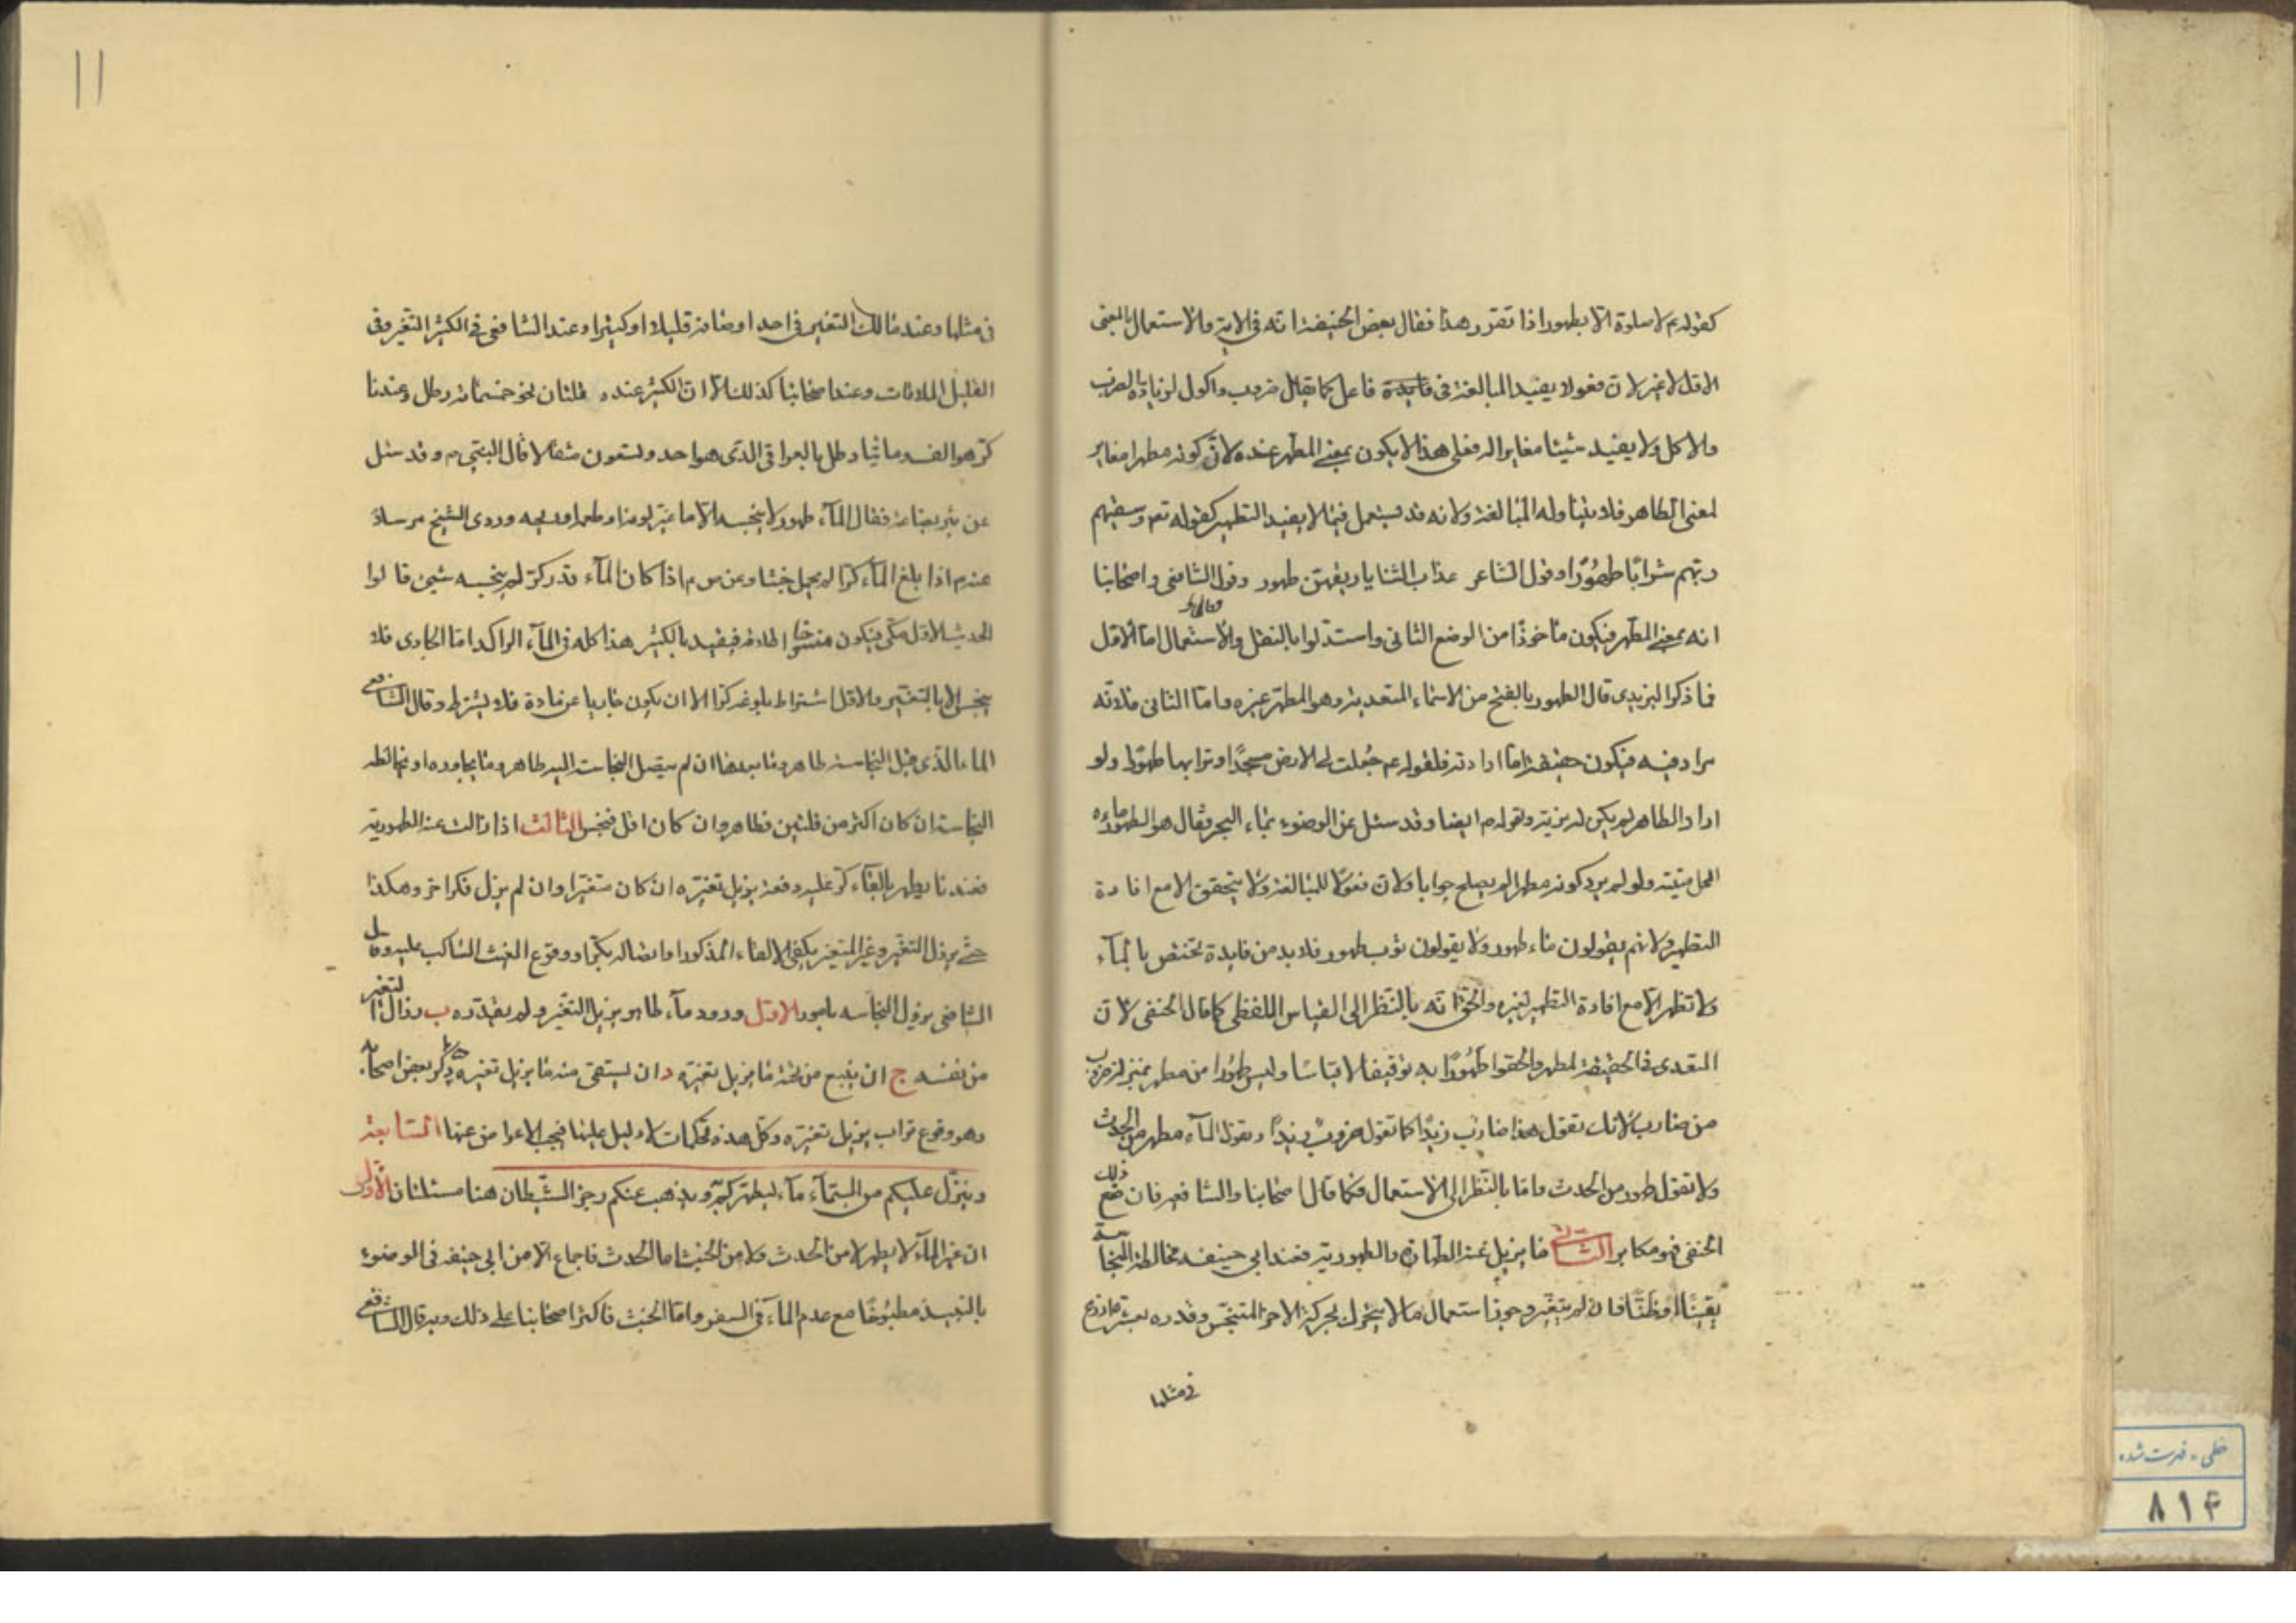 كقوله م لا صلوة الا بطهور اذا تقرر هذا فقال بعض الحنيفة انه فى الاية والاستعمال بالمعنى
الاول لا غير لان فعولا يفيد المبالغة فى فايدة فاعل كما يقال ضروب واكول لزيادة الضرب
والاكل ولا يفيد شيئا مغايرا له فعلى هذا لا يكون بمعنى المطهر عنده لان كونه مطهرا مغاير
لمعنى الطاهر فلا يتناوله المبالغة ولانه قد يستعمل فيما لا يفيد التطهير كقوله تعم وسقيهم
ربهم شرابًا طهُورًا وقول الشاعر عذاب الثنايا ريقهن طهور وقول الشافعى واصحابنا
انه بمعنى المطهر فيكون مأخوذًا من الوضع الثانى واستدلوا بالنقل والاستعمال اما الاول
فما ذكر اليزيدى قال الطهور بالفتح من الاسماء المتعدية وهو المطهر غيره واما الثانى فلانه
مراد فيه فيكون حقيقة اما ارادته فلقوله عم جعلت لى الارض مسجدًا وترابها طهورًا ولو
اراد الطاهر لم يكن له مزية ولقوله م ايضا وقد سئل عن الوضوء بماء البحر فقال هو الطهور ماؤه
الحل ميتته ولو لم يرد كونه مطهرا لم يصلح جوابا ولان فعولا للمبالغة ولا يتحقق الا مع افادة
التطهير ولانهم يقولون ماء طهور ولا يقولون ثوب طهور فلا بد من فايدة تختص بالمآء
ولا تظهر الا مع افادة التطهير لغيره والحق انه بالنظر الى القياس اللفظى كما قال الحنفى لان
المتعدى فى الحقيقة لمطهر والحقوا طهُورًا به توقيفا لا قياسًا وليس طهُورا من مطهر بمنزلة ضروب
من ضارب لانك تقول هذا ضارب زيدًا كما تقول ضروب زيدًا وتقول المآء مطهر من الحدث
ولا تقول طهور من الحدث واما بالنظر الى الاستعمال فكما قال اصحابنا والشافعيه فان منع ذلك
الحنفى فهو مكابر الثانى فما يزيل عنه الطهارة والطهورية فعند ابى حنيفه مخالطة النجاسة
يقينًا او ظنًا فان لم يتغير وجوز استعمال ما لا يتحرك بحركة الاخر المتنجس وقدره بعشرة اذرع
فى مثلها
١١
فى مثلها وعند مالك التغير فى احد اوصافه قليلا او كثيرا وعند الشافعى فى الكثير التغير وفى
القليل الملاقات وعند اصحابنا كذلك الا ان الكثير عنده قلتان نحو خمسمائة رطل وعندنا
كر هو الف ومائتا رطل بالعراقى الذى هو احد وتسعون مثقالا قال النبى م وقد سئل
عن بئر بضاعة فقال المآء طهور لا ينجسه الا ما غير لونه او طعمه او ريحه وروى الشيخ مرسلا
عنه م اذا بلغ المآء كرا لم يحمل خبثا وعن ص م اذا كان المآء قدر كر لم ينجسه شىء قالوا
الحديث الاول مكى فيكون منسوخا اطلاقه فيقيد بالكثير هذا كله فى المآء الراكد اما الجارى فلا
ينجس الا بالتغير والاقل اشتراط بلوغه كرا الا ان يكون جاريا عن مادة فلا يشترط وقال الشافعى
الماء الذى قبل النجاسة طاهر وما بعدها ان لم يتصل النجاسة اليه طاهر وما يجاوره او يخالطه
النجاسة ان كان اكثر من قلتين فطاهر وان كان اقل فنجس الثالث اذا زالت عنه الطهورية
فعندنا يطهر بالقاء كر عليه دفعة يزيل تغيره ان كان متغيرا وان لم يزل فكرا خر وهكذا
حتى يزول التغير وغير المتغير يكفى الالقاء المذكور او اتصاله بكر او وقوع الغيث الساكب عليه وقال
الشافعى يزول النجاسه بامور الاول ورود مآء طاهر يزيل التغير ولم يقدره ب زوال التغير
من نفسه ج ان ينبع من تحته ما يزيل تغيره د ان يستقى منه ما يزيل تغيره ه ذكر بعض اصحابه
وهو وقوع تراب يزيل تغيره وكل هذه تحكمات لا دليل عليها فيجب الاعراض عنها السابعة
وينزل عليكم من السمآء مآء ليطهركم به ويذهب عنكم رجز الشيطان هنا مسئلتان الاولى
ان غير المآء لا يطهر لا من الحدث ولا من الخبث اما الحدث فاجماع الا من ابى حنيفه فى الوضوء
بالنبيذ مطبُوخًا مع عدم المآء فى السفر واما الخبث فاكثر اصحابنا على ذلك وبه قال الشافعى
خطى - فهرست شده
٨١۴